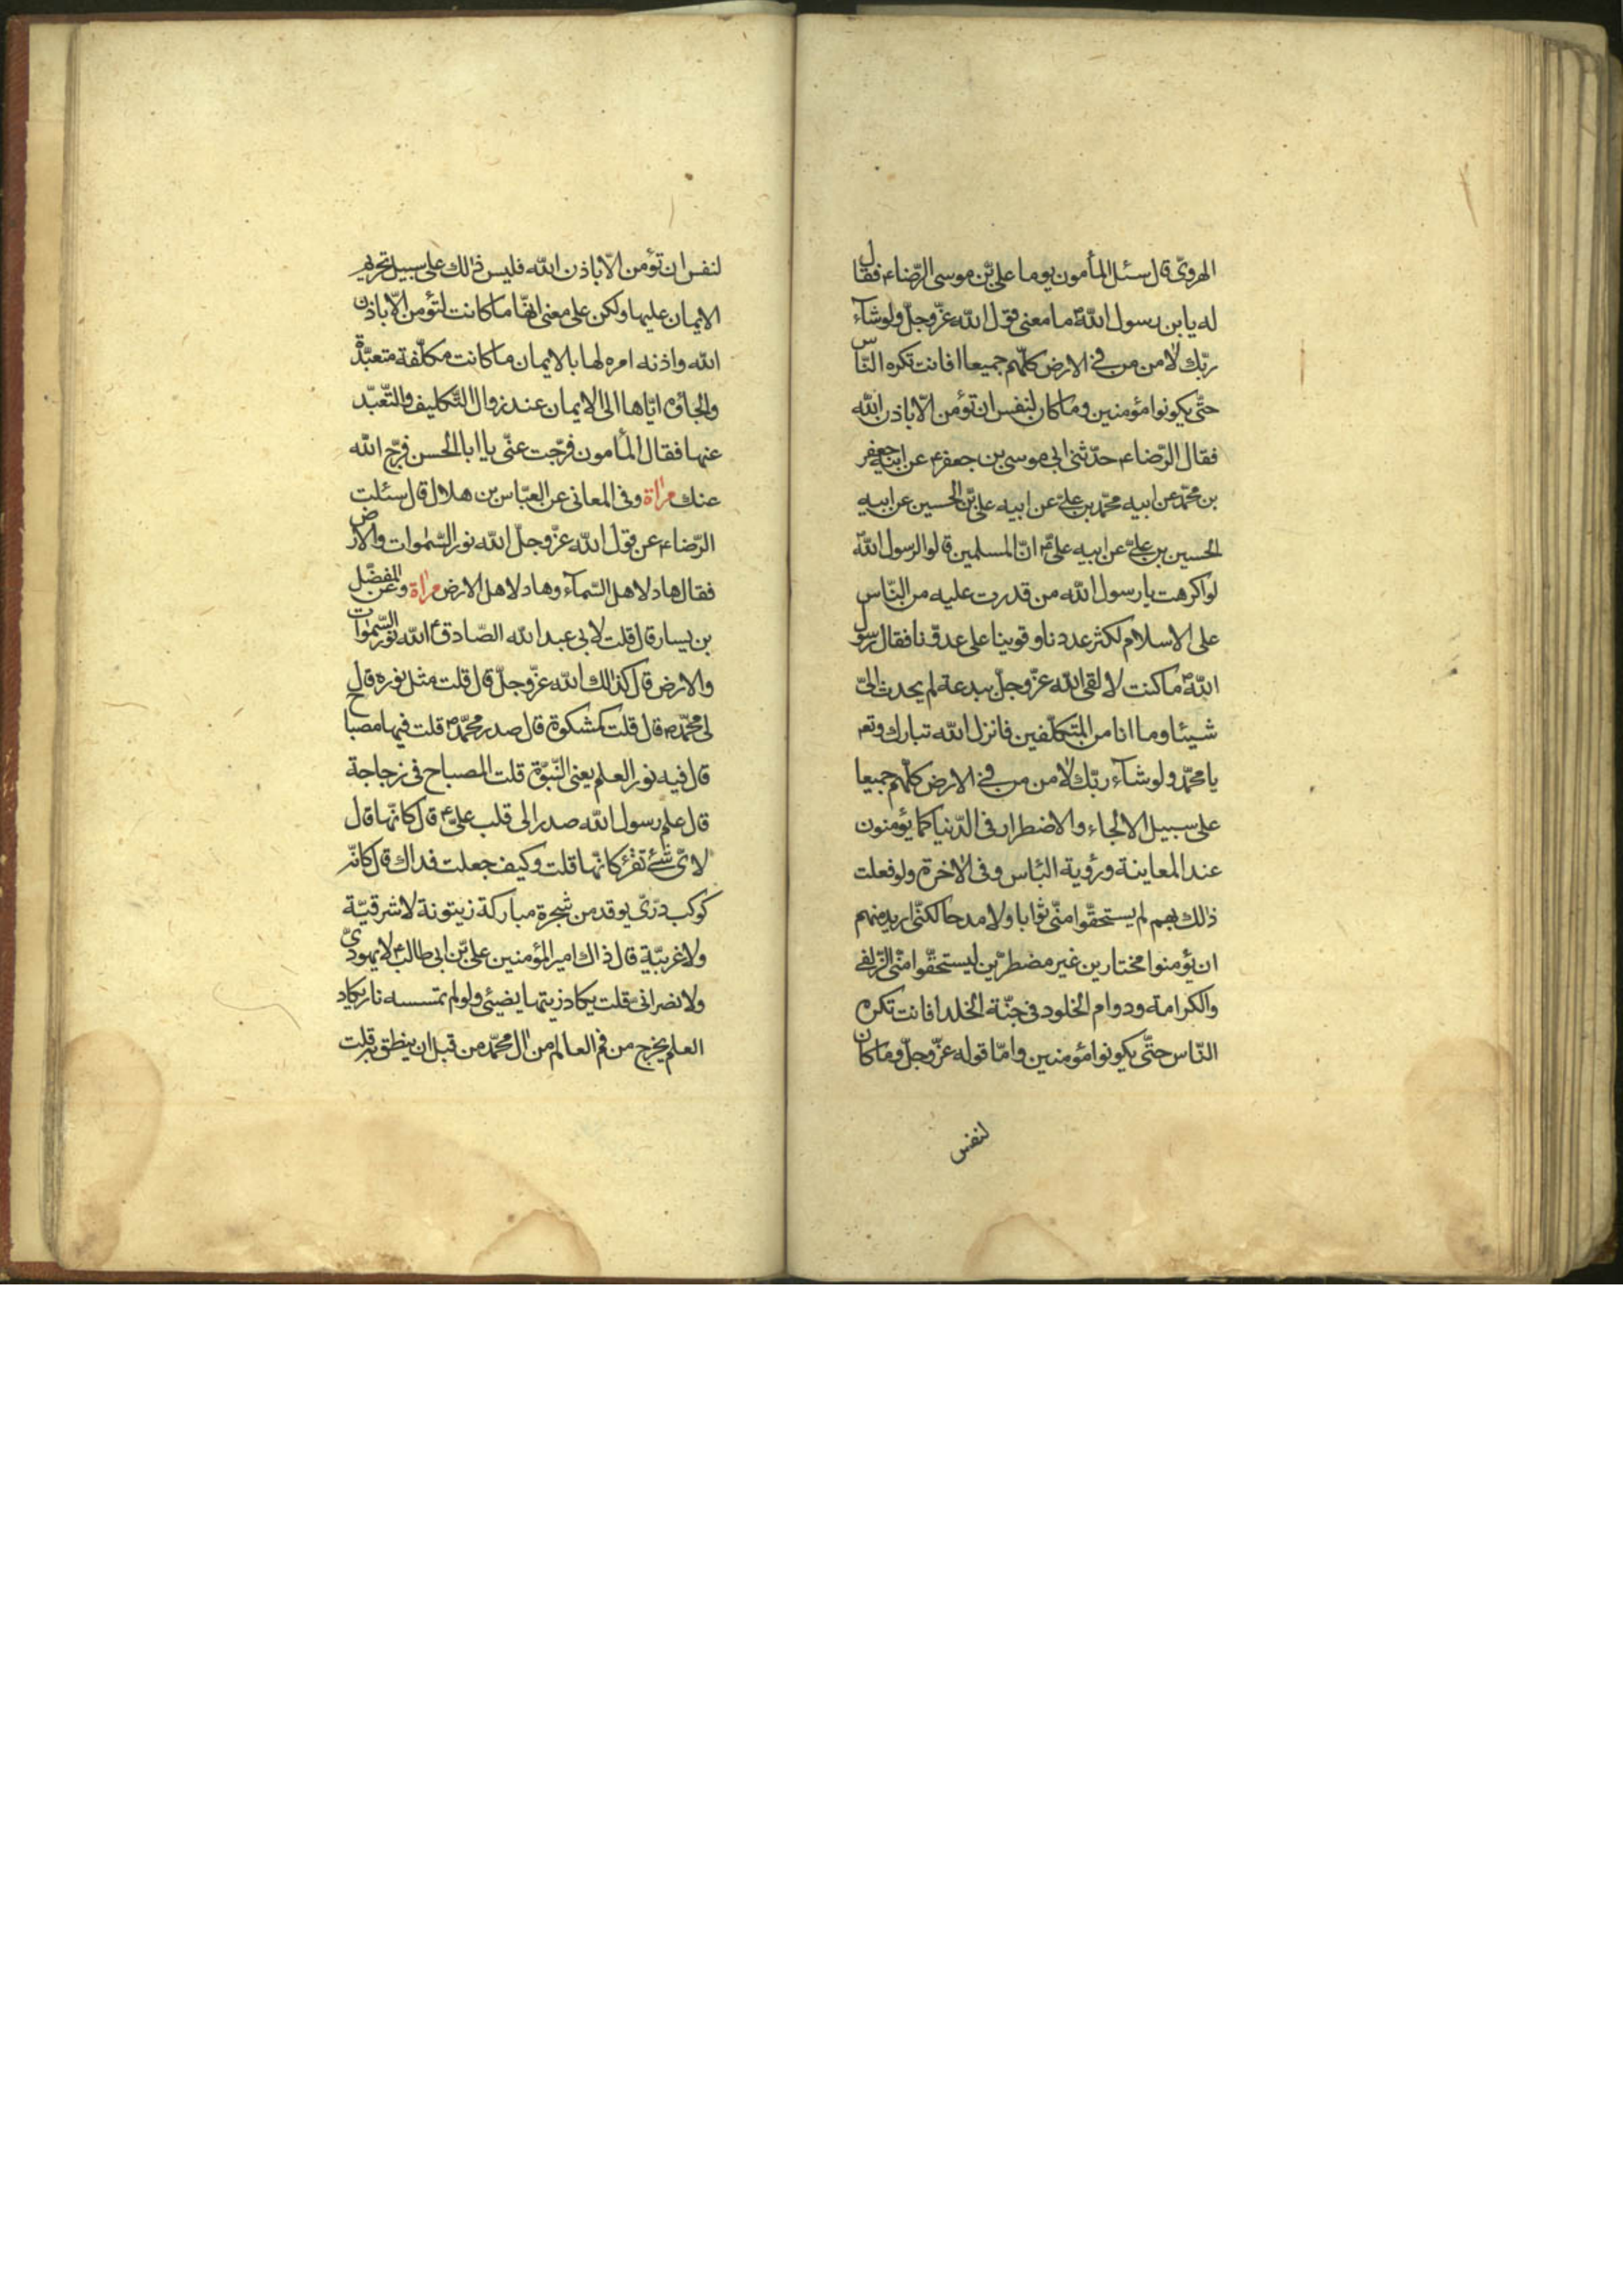 الهروىّ قال سئل المأمون يوما علىّ بن موسى الرّضاء فقال
له يا بن رسول اللّه ما معنى قول اللّه عزّ وجلّ ولو شآء
ربّك لأمن من فى الارض كلّهم جميعا افانت تكره النّاس
حتّى يكونوا مؤمنين وما كان لنفس ان تؤمن الّا باذن اللّه
فقال الرّضاء حدّثنى ابى موسى بن جعفر عن ابيه جعفر
بن محمّد عن ابيه محمّد بن علىّ عن ابيه علىّ بن الحسين عن ابيه
الحسين بن علىّ عن ابيه علىّ انّ المسلمين قالوا لرسول اللّه
لو اكرهت يا رسول اللّه من قدرت عليه من النّاس
على الاسلام لكثر عددنا وقوينا على عدوّنا فقال رسول
اللّه ما كنت لالقى اللّه عزّ وجلّ ببدعة لم يحدث الىّ
شيئا وما انا من المتكلّفين فانزل اللّه تبارك وتعم
يا محمّد ولو شآء ربّك لأمن من فى الارض كلّهم جميعا
على سبيل الالجاء والاضطرار فى الدّنيا كما يؤمنون
عند المعاينة ورؤية البأس وفى الاخرة ولو فعلت
ذلك بهم لم يستحقّوا منّى ثوابا ولا مدحا لكنّى اريد منهم
ان يؤمنوا مختارين غير مضطرّين ليستحقّوا منّى الزّلفى
والكرامة ودوام الخلود فى جنّة الخلد افانت تكره
النّاس حتّى يكونوا مؤمنين وامّا قوله عزّ وجلّ وما كان
لنفس
لنفس ان تؤمن الّا باذن اللّه فليس ذلك على سبيل تحريم
الايمان عليها ولكن على معنى انّها ما كانت لتؤمن الّا باذن
اللّه واذنه امره لها بالايمان ما كانت مكلّفة متعبّدة
والجاؤه ايّاها الى الايمان عند زوال التّكليف والتّعبّد
عنها فقال المأمون فرّجت عنّى يا ابا الحسن فرّج اللّه
عنك مرأة وفى المعانى عن العبّاس بن هلال قال سئلت
الرّضاء عن قول اللّه عزّ وجلّ اللّه نور السّموات والارض
فقال هاد لاهل السّمآء وهاد لاهل الارض مرأة وعن المفضّل
بن يسار قال قلت لابى عبد اللّه الصّادق اللّه نور السّموات
والارض قال كذلك اللّه عزّ وجلّ قال قلت مثل نوره قال
لى محمّد قال قلت كمشكوة قال صدر محمّد قلت فيها مصباح
قال فيه نور العلم يعنى النّبوّة قلت المصباح فى زجاجة
قال علم رسول اللّه صدر الى قلب علىّ قال كانّها قال
لاىّ شئ تقرئ كانّها قلت وكيف جعلت فداك قال كانّه
كوكب درّىّ يوقد من شجرة مباركة زيتونة لا شرقيّة
ولا غربيّة قال ذاك امير المؤمنين علىّ بن ابى طالب لا يهودىّ
ولا نصرانىّ قلت يكاد زيتها يضيئ ولو لم تمسسه نار يكاد
العلم يخرج من فم العالم من ال محمّد من قبل ان ينطق به قلت